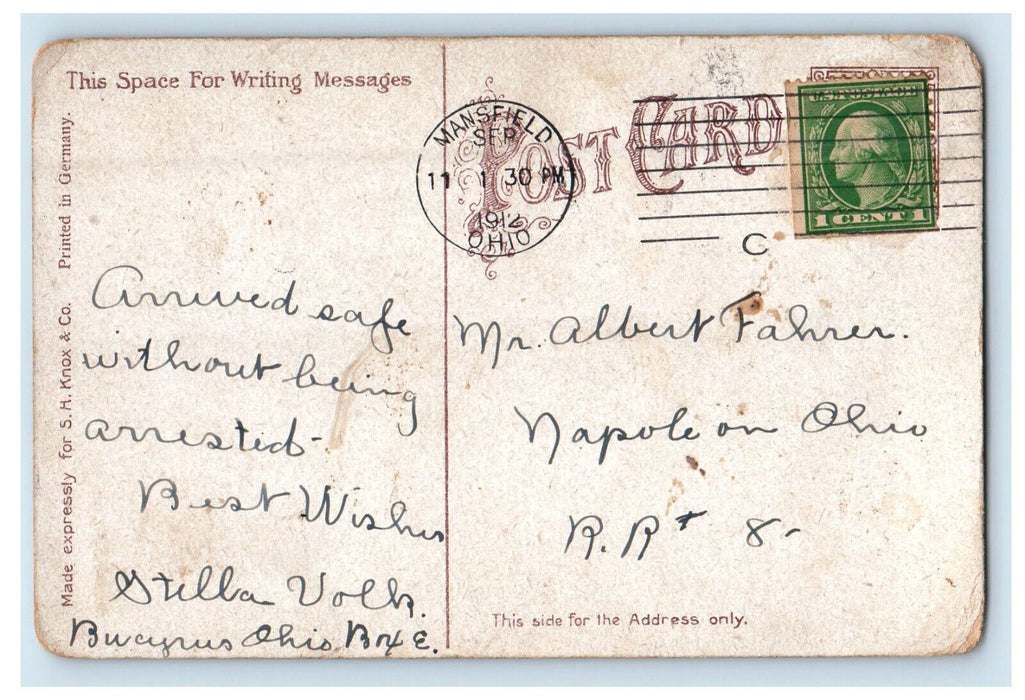 This Space For Writing Messages
POST CARD
MANSFIELD
SEP
11 1 30 PM
1912
OHIO
C
1 CENT 1
Made expressly for S. H. Knox & Co. Printed in Germany.
Arrived safe
without being
arrested-
Best Wishes
Stella Volk.
Bucyrus Ohio Bx E.
Mr. Albert Fahrer.
Napoleon Ohio
R. R # 8-
This side for the Address only.